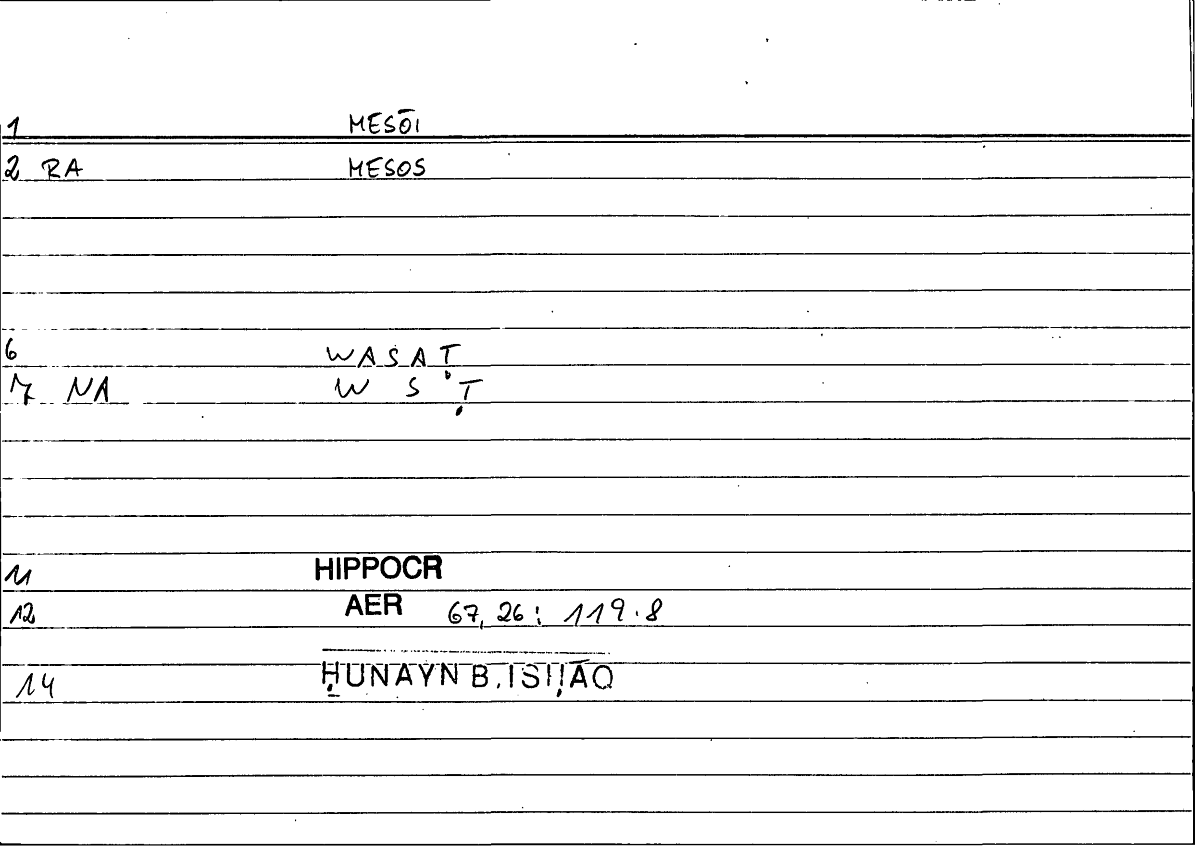 1 MESŌI
2 RA MESOS
6 WASAṬ
7 NA W S Ṭ
11 HIPPOCR
12 AER 67, 26; 119.8
14 ḤUNAYN B. ISḤĀQ